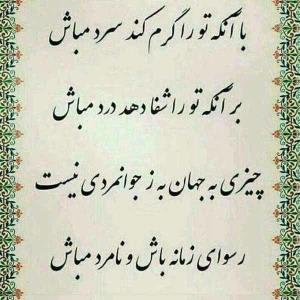 با آنکه تو را گرم کند سرد مباش
بر آنکه تو را شفا دهد درد مباش
چیزی به جهان به ز جوانمردی نیست
رسوای زمانه باش و نامرد مباش